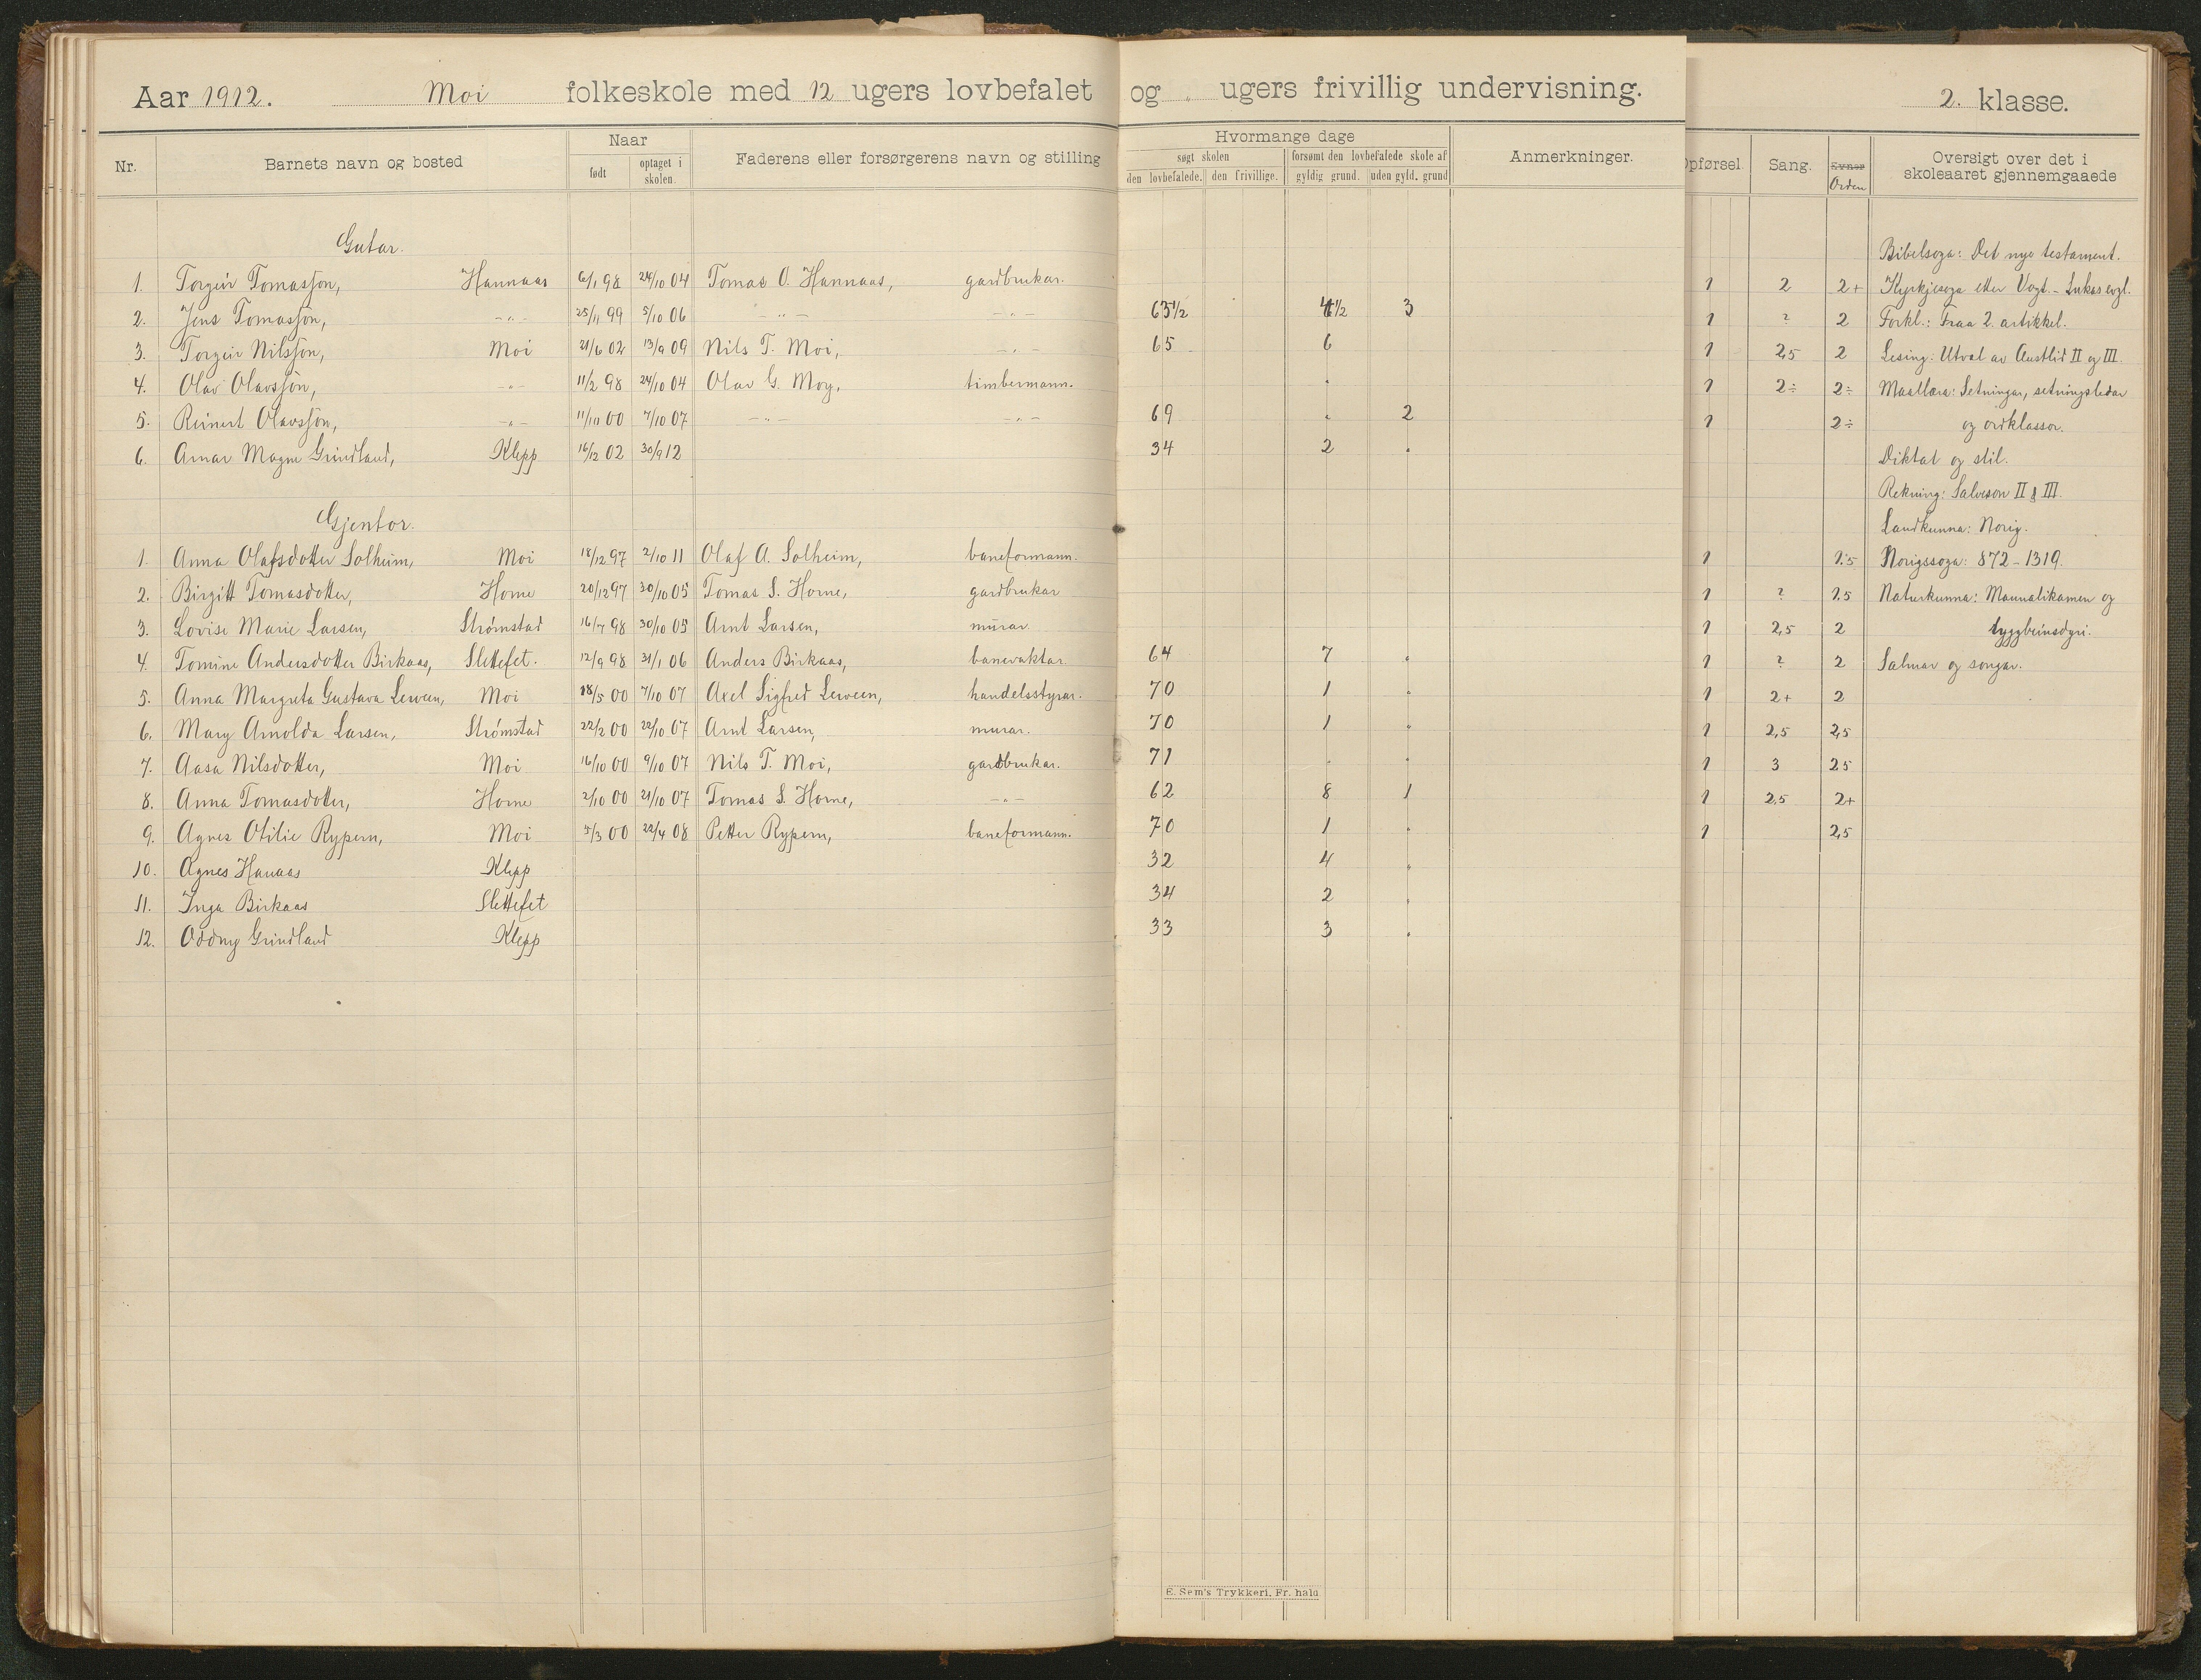 Aar 1912. Moi folkeskole med 12 ugers lovbefalet og " ugers frivillig undervisning. 2. klasse.
Nr. Barnets navn og bosted Naar født optaget i skolen. Faderens eller forsørgerens navn og stilling Hvormange dage søgt skolen den lovbefalede. den frivillige. forsømt den lovbefalede skole af gyldig grund. uden gyld. grund Anmerkninger. Opførsel. Sang. Evner Orden Oversigt over det i skoleaaret gjennemgaaede
Gutar. Bibelsoga: Det nye testament.
1. Torgeir Tomasson, Hannaas 6/1 98 24/10 04 Tomas O. Hannaas, gardbrukar. 1 2 2+ Kyrkjesoga etter Vogt. - Lukas evgl.
2. Jens Tomasson, -"- 25/11 99 5/10 06 -"- -"- 63 1/2 4 1/2 3 1 ? 2 Forkl.: Fraa 2. artikkel.
3. Torgeir Nilsson, Moi 21/6 02 13/9 09 Nils T. Moi, -"- 65 6 1 2,5 2 Lesing: Utval av Austlid II og III.
4. Olav Olavsson, -"- 11/2 98 24/10 04 Olav G. Moy, timbermann. 1 2÷ 2÷ Maallæra: Setningar, setningsledar
5. Reinert Olavsson, -"- 11/10 00 7/10 07 -"- -"- 69 " 2 1 2÷ og ordklassor.
6. Arnar Magne Grindland, Klepp 16/12 02 30/9 12 34 2 " Diktat og stil.
Rekning: Salveson II & III.
Gjentor. Landkunna: Norig.
1. Anna Olafsdotter Solheim, Moi 18/12 97 2/10 11 Olaf A. Solheim, baneformann. 1 1.5 Norigssoga: 872-1319.
2. Birgitt Tomasdotter, Home 20/12 97 30/10 05 Tomas S. Home, gardbrukar 1 ? 1.5 Naturkunna: Mannalikamen og
3. Lovise Marie Larsen, Strømstad 16/7 98 30/10 05 Arnt Larsen, murar. 1 2,5 2 ryggbeinsdyri.
4. Tomine Andersdotter Birkaas, Slettefet. 12/9 98 31/1 06 Anders Birkaas, banevaktar. 64 7 " 1 ? 2 Salmar og songar.
5. Anna Margreta Gustava Leween, Moi 18/5 00 7/10 07 Axel Sigfred Leween, handelsstyrar. 70 1 " 1 2+ 2
6. Mary Arnolda Larsen, Strømstad 22/2 00 22/10 07 Arnt Larsen, murar. 70 1 " 1 2,5 2,5
7. Aasa Nilsdotter, Moi 16/10 00 9/10 07 Nils T. Moi, gardbrukar. 71 " " 1 3 2.5
8. Anna Tomasdotter, Home 2/10 00 21/10 07 Tomas S. Home, -"- 62 8 1 1 2,5 2+
9. Agnes Otilie Rypern, Moi 5/3 00 22/4 08 Petter Rypern, baneformann. 70 1 " 1 2,5
10. Agnes Hanaas Klepp 32 4 "
11. Inga Birkaas Slettefet 34 2 "
12. Oddny Grindland Klepp 33 3 "
E. Sem's Trykkeri, Fr. hald